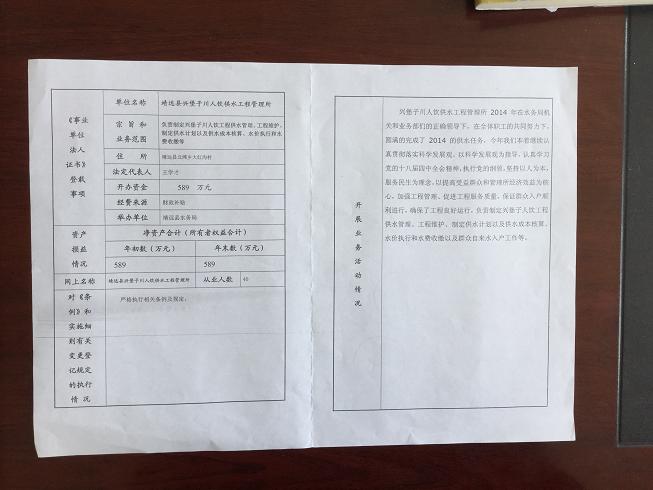 《事业
单位
法人
证书》
登载
事项
单位名称
靖远县兴堡子川人饮供水工程管理所
宗旨和
业务范围
负责制定兴堡子川人饮工程供水管理、工程维护、
制定供水计划以及供水成本核算、水价执行和水
费收缴等
住所
法定代表人
王学才
开办资金
589 万元
经费来源
财政补贴
举办单位
靖远县水务局
资产
损益
情况
净资产合计（所有者权益合计）
年初数（万元）
年末数（万元）
589
589
网上名称
靖远县兴堡子川人饮供水工程管理所
从业人数
40
对《条
例》和
实施细
则有关
变更登
记规定
的执行
情况
严格执行相关条例及规定。
开展业务活动情况
兴堡子川人饮供水工程管理所 2014 年在水务局机
关和业务部们的正确领导下，在全体职工的共同努力下，
圆满的完成了 2014 的供水任务，今年我们本着继续认
真贯彻落实科学发展观，以科学发展观为指导，认真学习
党的十八届四中全会精神，执行党的纲领，坚持以人为本，
服务民生为理念，以提高受益群众和管理所经济效益为核
心，加强工程管理、促进工程服务质量，保证群众入户顺
利进行，确保了工程良好运行，负责制定兴堡子人饮工程
供水管理、工程维护、制定供水计划以及供水成本核算、
水价执行和水费收缴以及群众自来水入户工作等。